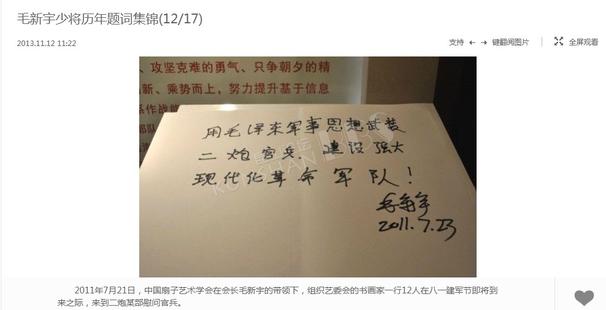 毛新宇少将历年题词集锦(12/17)
2013.11.12 11:22
支持 ← → 键翻阅图片
全屏观看
、攻坚克难的勇气、只争朝夕的精
新、乘势而上，努力提升基于信息
系作战能
用毛泽东军事思想武装
二炮官兵、建设强大
现代化革命军队！
毛新宇
2011.7.23
2011年7月21日，中国扇子艺术学会在会长毛新宇的带领下，组织艺委会的书画家一行12人在八一建军节即将到
来之际，来到二炮某部慰问官兵。